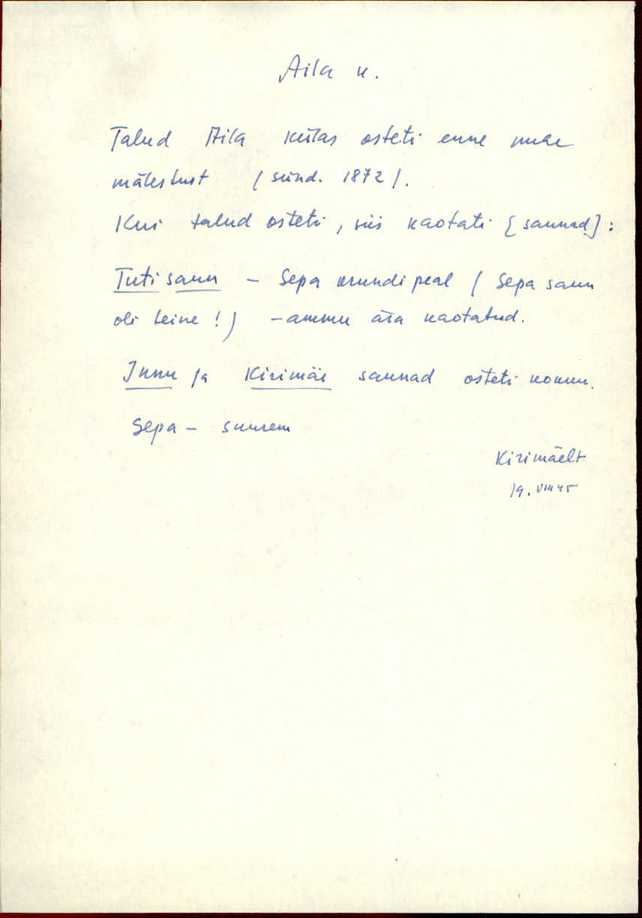 Aila k.
Talud Aila külas osteti enne minu
mälestust (sünd. 1872).
Kui talud osteti, siis kaotati [saunad]:
Tuti saun - Sepa krundi peal (Sepa saun
oli teine!) - ammu ära kaotatud.
Innu ja Kirimäe saunad osteti
Sepa - suurem
Kirimäelt
19. VIII 45